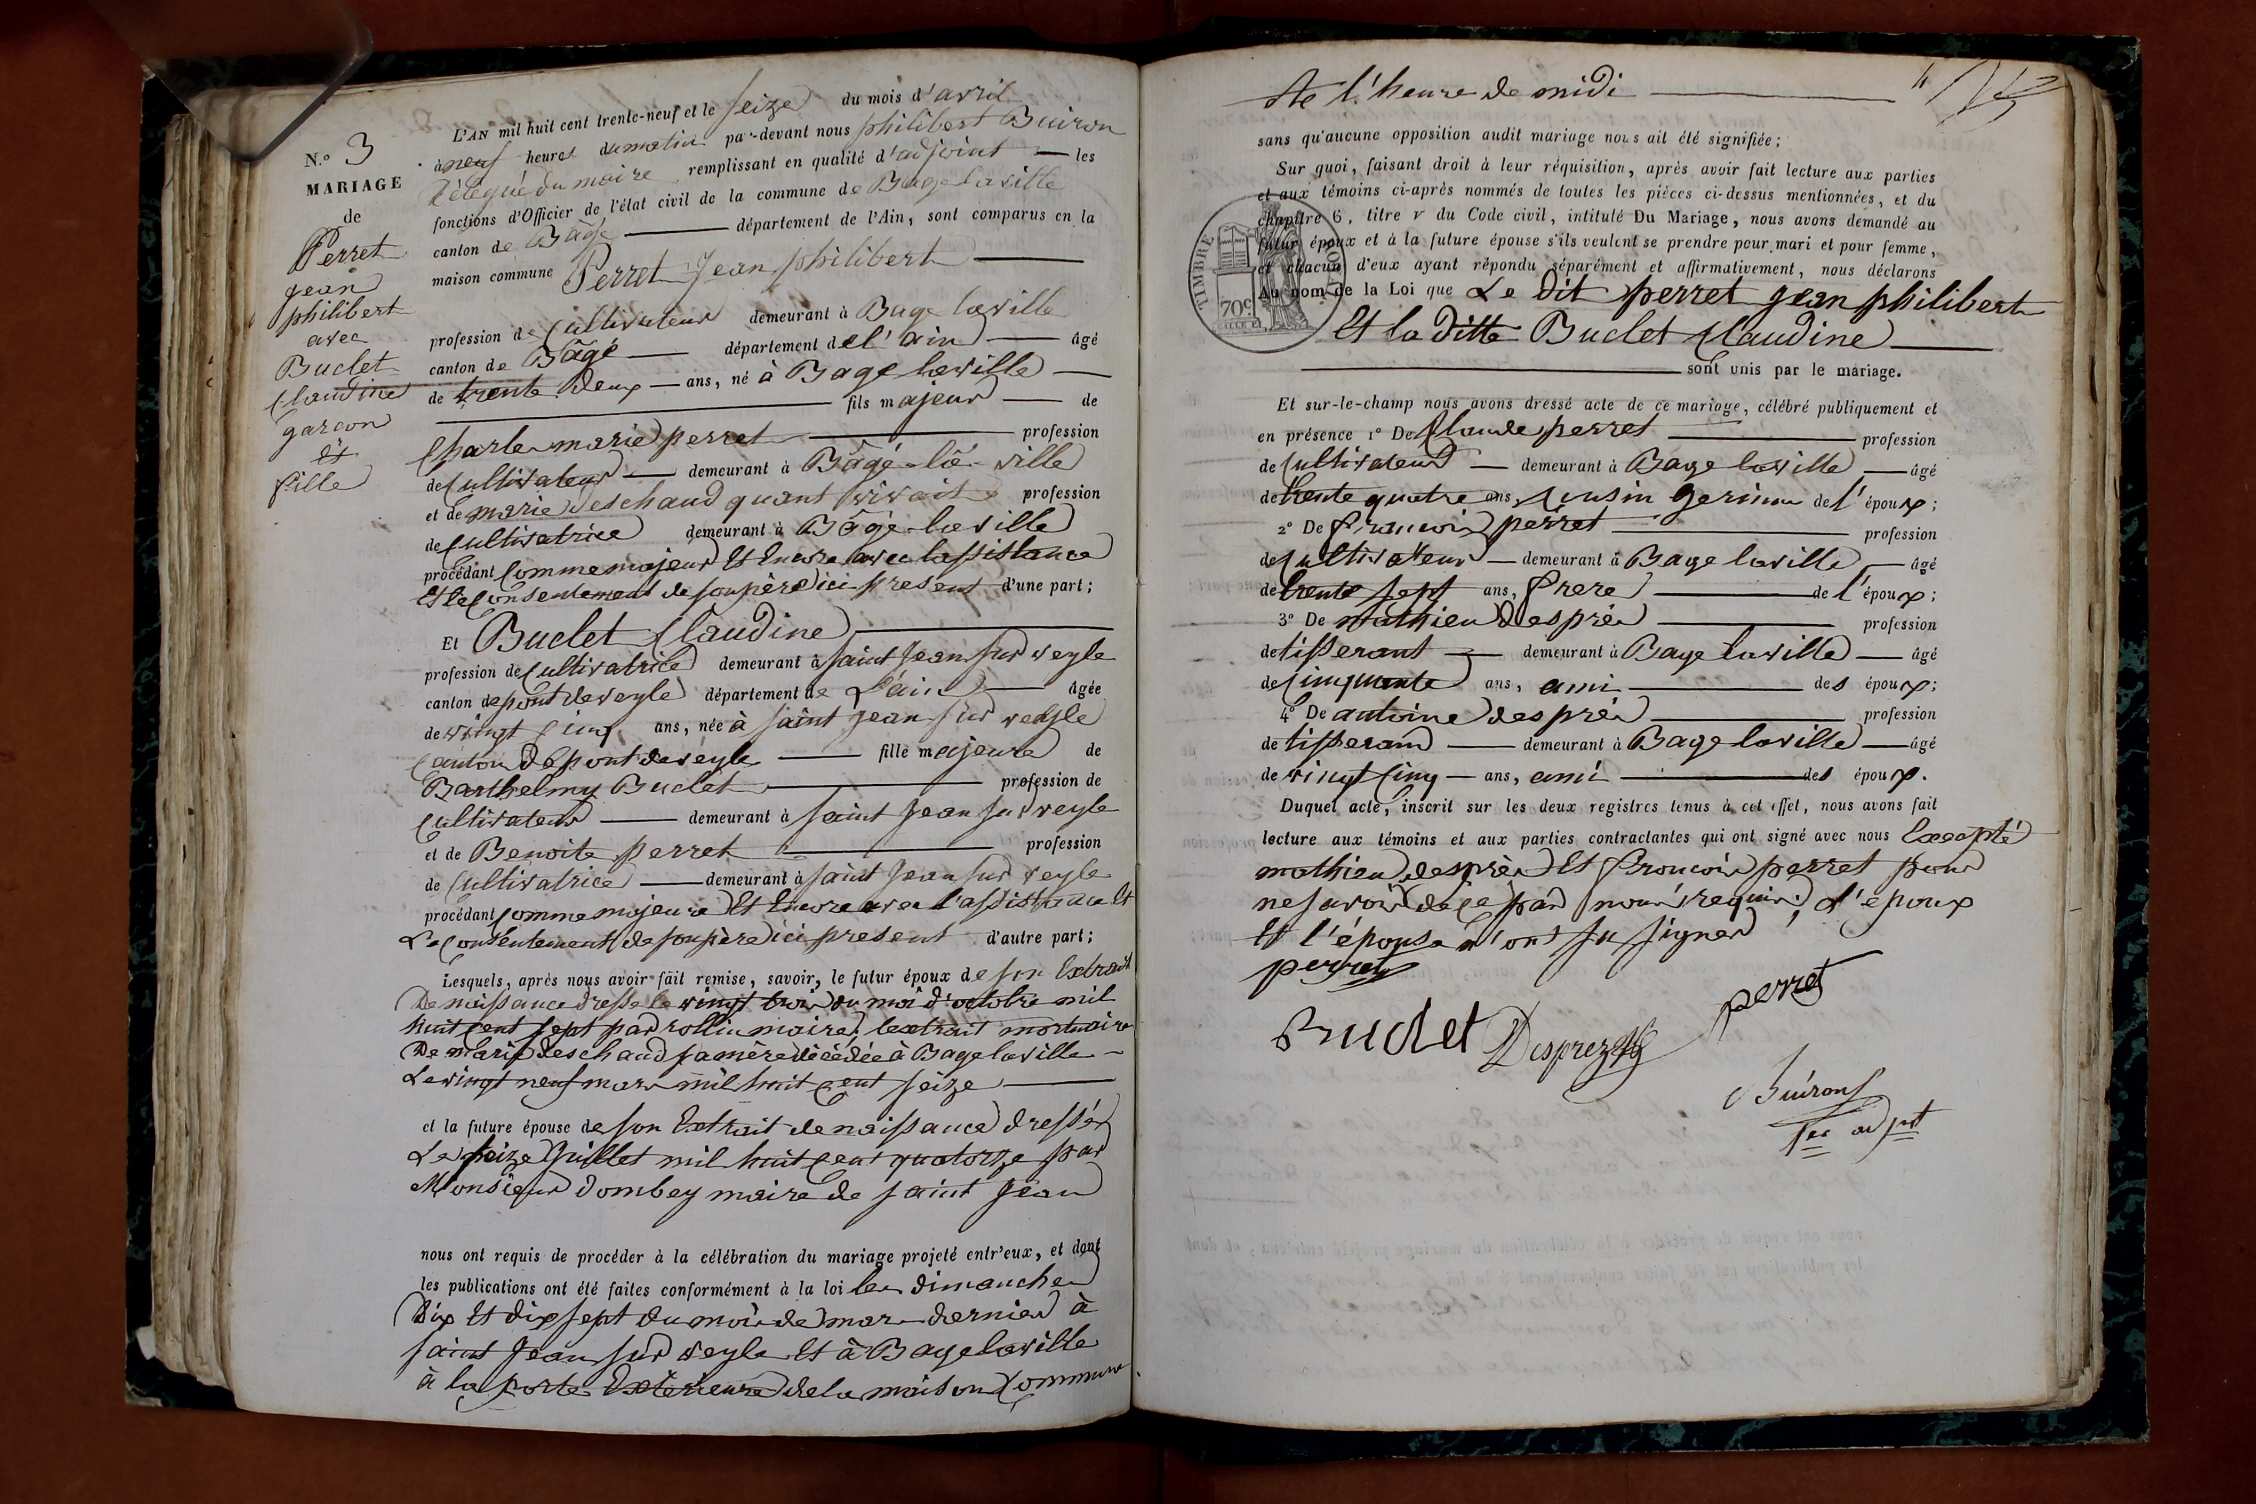 N.º 3
MARIAGE
de
Perret
jean
philibert
avec
Buclet
Claudine
garcon
et
fille
L'AN mil huit cent trente-neuf et le seize du mois d'avril
à neuf heures du matin par-devant nous philibert Buiron
délégué du maire remplissant en qualité d'adjoint les
fonctions d'Officier de l'état civil de la commune de Bage laville
canton de Bâgé département de l'Ain, sont comparus en la
maison commune Perret Jean philibert
profession de Cultivateur demeurant à Bage laville
canton de Bâgé département de l'ain âgé
de trente deux ans, né à Bage laville
fils majeur de
Charle marie perret profession
de Cultivateur demeurant à Bâgé la ville
et de marie deschaud quant vivait profession
de Cultivatrice demeurant à Bâgé laville
procédant Comme majeur Et Encore avec lassistance
Et le Consentement de son père ici present d'une part;
Et Buclet Claudine
profession de Cultivatrice demeurant à saint Jean sur veyle
canton de pont de veyle département de L'ain âgée
de vingt Cinq ans, née à saint jean sur veyle
Canton de pont de veyle fille majeure de
Barthelmy Buclet profession de
Cultivateur demeurant à saint Jean sur veyle
et de Benoite perret profession
de Cultivatrice demeurant à saint Jean sur veyle
procédant Comme majeure Et Encore avec l'assistance Et
Le Consentement de son père ici present d'autre part;
Lesquels, après nous avoir fait remise, savoir, le futur époux de son Extrait
De naissance dressé le vingt trois du moi d'octobre mil
huit Cent sept par rollin maire, lextrait mortuaire
De marie deschaud sa mère décédée à Bage laville
Le vingt neuf mars mil huit Cent seize
et la future épouse de son Extrait de naissance dressés
Le seize Juillet mil huit Cent quatorze par
Monsieur dombey maire de saint Jean
nous ont requis de procéder à la célébration du mariage projeté entr'eux, et dont
les publications ont été faites conformément à la loi les dimanches
Dix Et dix sept du mois de mars dernier à
saint Jean sur veyle Et à Bage laville
à la porte Extérieure de la maison Commune
De l'heure de midi
sans qu'aucune opposition audit mariage nous ait été signifiée;
Sur quoi, faisant droit à leur réquisition, après avoir fait lecture aux parties
et aux témoins ci-après nommés de toutes les pièces ci-dessus mentionnées, et du
chapitre 6, titre v du Code civil, intitulé Du Mariage, nous avons demandé au
futur époux et à la future épouse s'ils veulent se prendre pour mari et pour femme,
et chacun d'eux ayant répondu séparément et affirmativement, nous déclarons
Au nom de la Loi que Le dit perret jean philibert
Et la ditte Buclet Claudine
sont unis par le mariage.
TIMBRE ROYAL
70c
Et sur-le-champ nous avons dressé acte de ce mariage, célébré publiquement et
en présence 1º De Claude perret profession
de Cultivateur demeurant à Bage laville âgé
de trente quatre ans, Cousin germin de l'époux;
2º De francois perret profession
de Cultivateur demeurant à Bage laville âgé
de trente sept ans, frere de l'époux;
3º De mathieu desprès profession
de tisserant demeurant à Bage laville âgé
de Cinquante ans, ami des époux;
4º De antoine desprès profession
de tisseran demeurant à Bage laville âgé
de vingt Cinq ans, ami des époux.
Duquel acte, inscrit sur les deux registres tenus à cet effet, nous avons fait
lecture aux témoins et aux parties contractantes qui ont signé avec nous Excepté
mathieu desprès Et francois perret pour
ne savoir de ce par nous requis; L'époux
Et l'épouse n'ont su signer
perret
perret
Buclet Desprez
Buiron
1er adjt